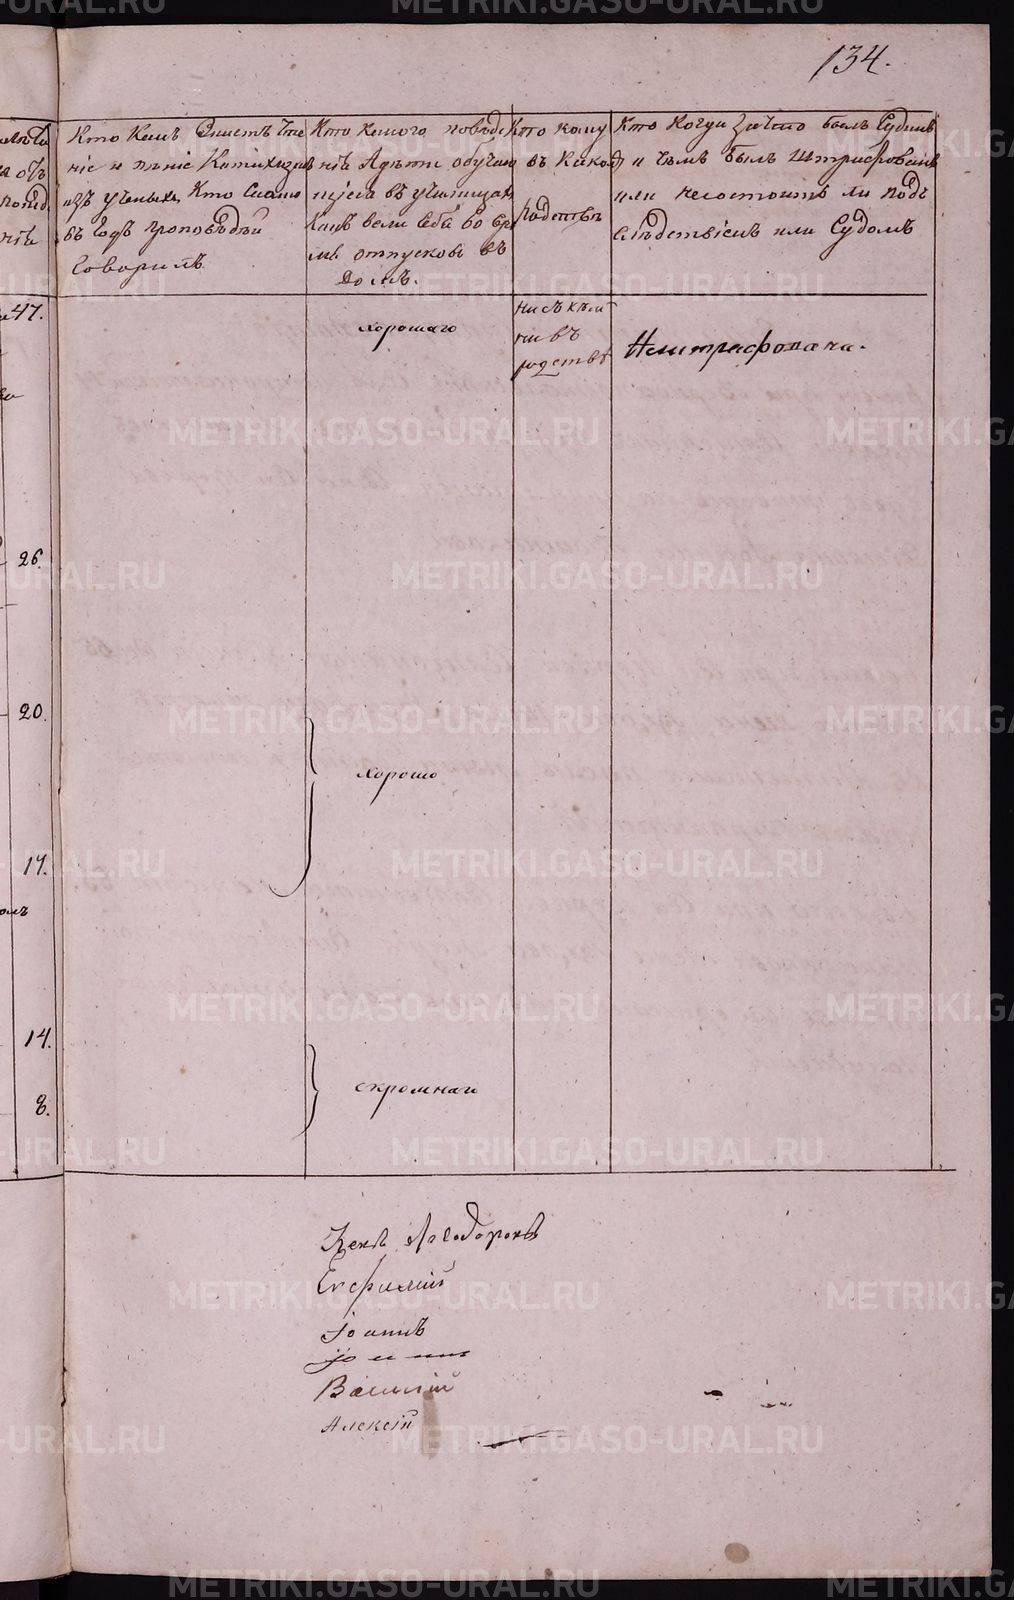 134.
Кто какъ Знаетъ Чте
ніе и пѣніе Катихизисъ
изъ ученыхъ, Кто Сколько
въ Годъ проповѣдей
Говорилъ.
Кто какого поведе
нія Адѣти обучаю
щіеся въ училищахъ
Какъ вели себя во вре
мя отпусковъ въ
домъ.
Кто кому
въ какомъ
родствѣ
Кто Когда Зачто былъ Судимъ
и чѣмъ былъ штрафованъ
или несостоитъ ли подъ
Слѣдствіемъ или Судомъ
47.
хорошаго
ни съ кѣмъ
ни въ
родствѣ
Нештрафована.
26.
20.
хорошо
17.
14.
скромнаго
8.
Евфимій
Іоаннъ
Василій
Алексій